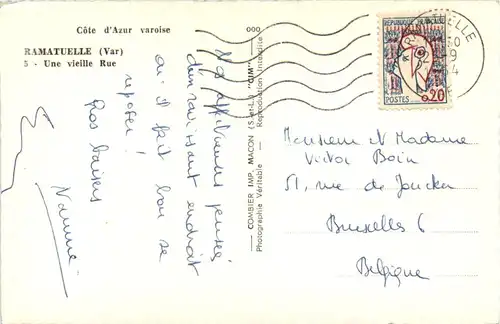 Côte d'Azur varoise
RAMATUELLE (Var)
5 - Une vieille Rue
Nos affectueuses pensées
d'un ravissant endroit
où il fait bon se
reposer !
Gros baisers
COMBIER IMP. MACON (S.-et-L.) "CIM"
Photographie Véritable - Reproduction Interdite
REPUBLIQUE FRANÇAISE
POSTES 0,20
RAMATUELLE
Monsieur et Madame
Victor Boin
51, rue de Joncker
Bruxelles 6
Belgique